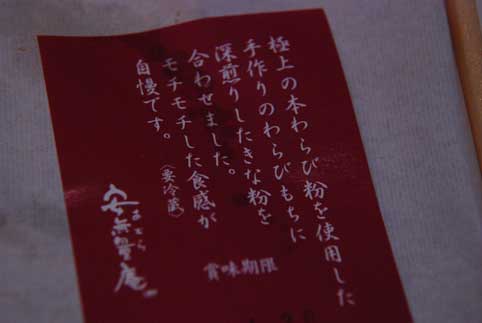 極上の本わらび粉を使用した
手作りのわらびもちに
深煎りしたきな粉を
合わせました。
モチモチした食感が
自慢です。
〈要冷蔵〉
賞味期限